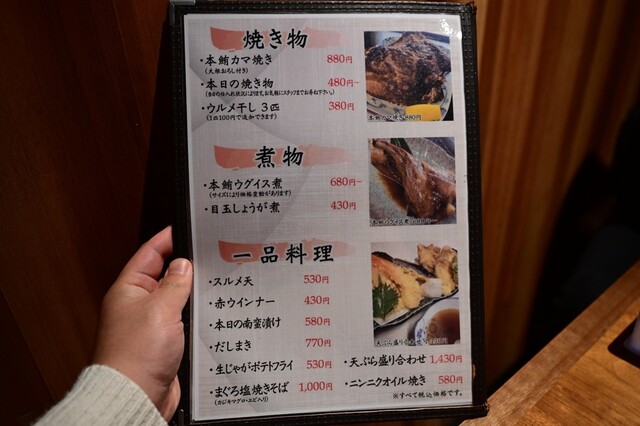 焼き物
・本鮪カマ焼き 880円
(大根おろし付き)
・本日の焼き物 480円~
(当日の仕入れ状況によります。お気軽にスタッフまでお尋ね下さい。)
・ウルメ干し 3匹 380円
(1匹100円で追加できます)
本鮪カマ焼き 880円
煮物
・本鮪ウグイス煮 680円~
(サイズにより価格変動があります)
・目玉しょうが煮 430円
一品料理
・スルメ天 530円
・赤ウインナー 430円
・本日の南蛮漬け 580円
・だしまき 770円
天ぷら盛り合わせ 1,430円
・生じゃがポテトフライ 530円
・天ぷら盛り合わせ 1,430円
・まぐろ塩焼きそば 1,000円
(カジキマグロ・エビ入り)
・ニンニクオイル焼き 580円
※すべて税込価格です。